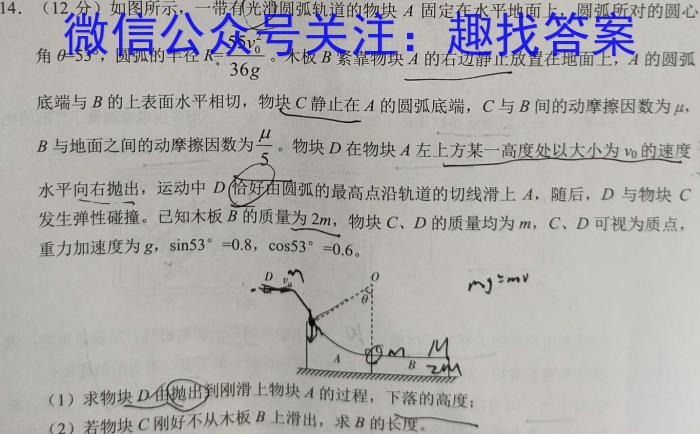 14. (12分)如图所示，一带有光滑圆弧轨道的物块 A 固定在水平地面上，圆弧所对的圆心
微信公众号关注：趣找答案
角 θ=53°，圆弧的半径 R=55v₀²/36g。木板 B 紧靠物块 A 的右边静止放置在地面上，A 的圆弧
底端与 B 的上表面水平相切，物块 C 静止在 A 的圆弧底端，C 与 B 间的动摩擦因数为 μ，
B 与地面之间的动摩擦因数为 μ/5。物块 D 在物块 A 左上方某一高度处以大小为 v₀ 的速度
水平向右抛出，运动中 D 恰好由圆弧的最高点沿轨道的切线滑上 A，随后，D 与物块 C
发生弹性碰撞。已知木板 B 的质量为 2m，物块 C、D 的质量均为 m，C、D 可视为质点，
重力加速度为 g，sin53°=0.8，cos53°=0.6。
D v₀ m O
θ
mg=mv
A m M
B 2M
(1) 求物块 D 由抛出到刚滑上物块 A 的过程，下落的高度；
(2) 若物块 C 刚好不从木板 B 上滑出，求 B 的长度。